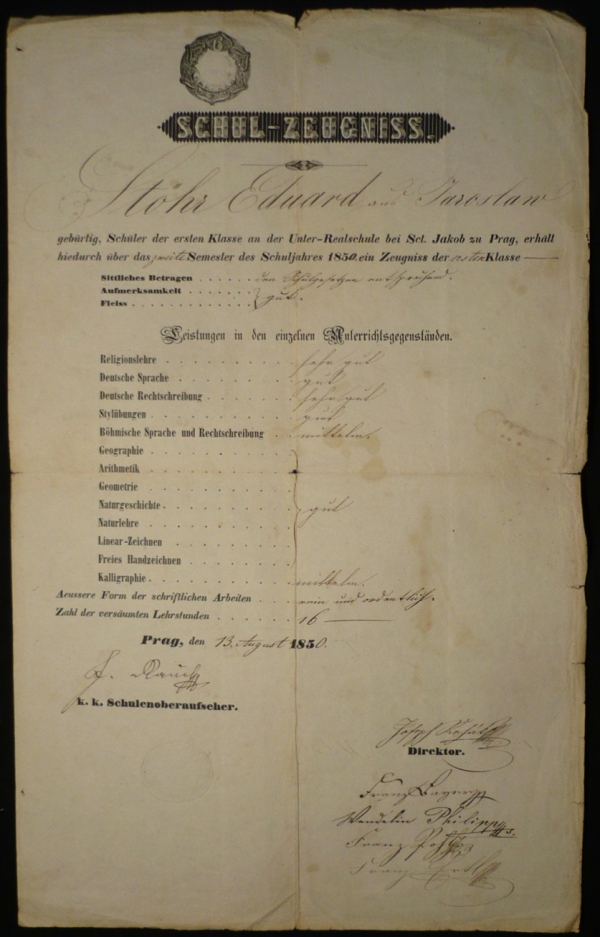 SCHUL-ZEUGNISS.
Stöhr Eduard aus Jaroslaw
gebürtig, Schüler der ersten Klasse an der Unter-Realschule bei Sct. Jakob zu Prag, erhält
hiedurch über das zweite Semester des Schuljahres 1850 ein Zeugniss der ersten Klasse
Sittliches Betragen . . . . . . . den Schulgesetzen entsprechend.
Aufmerksamkeit . . . . . . . gut.
Fleiss . . . . . . .
Leistungen in den einzelnen Unterrichtsgegenständen.
Religionslehre . . . . . . . sehr gut
Deutsche Sprache . . . . . . . gut
Deutsche Rechtschreibung . . . . . . sehr gut
Stylübungen . . . . . . . . gut
Böhmische Sprache und Rechtschreibung . . mittelm.
Geographie . . . . . . . .
Arithmetik . . . . . . . .
Geometrie . . . . . . . .
Naturgeschichte . . . . . . . . gut
Naturlehre . . . . . . . .
Linear-Zeichnen . . . . . . .
Freies Handzeichnen . . . . . .
Kalligraphie . . . . . . . . mittelm.
Aeussere Form der schriftlichen Arbeiten . . . rein und ordentlich.
Zahl der versäumten Lehrstunden . . . . . 16
Prag, den 13. August 1850.
k. k. Schulenoberaufseher.
Joseph
Direktor.
Franz
Wendelin Philipp
Franz
Franz